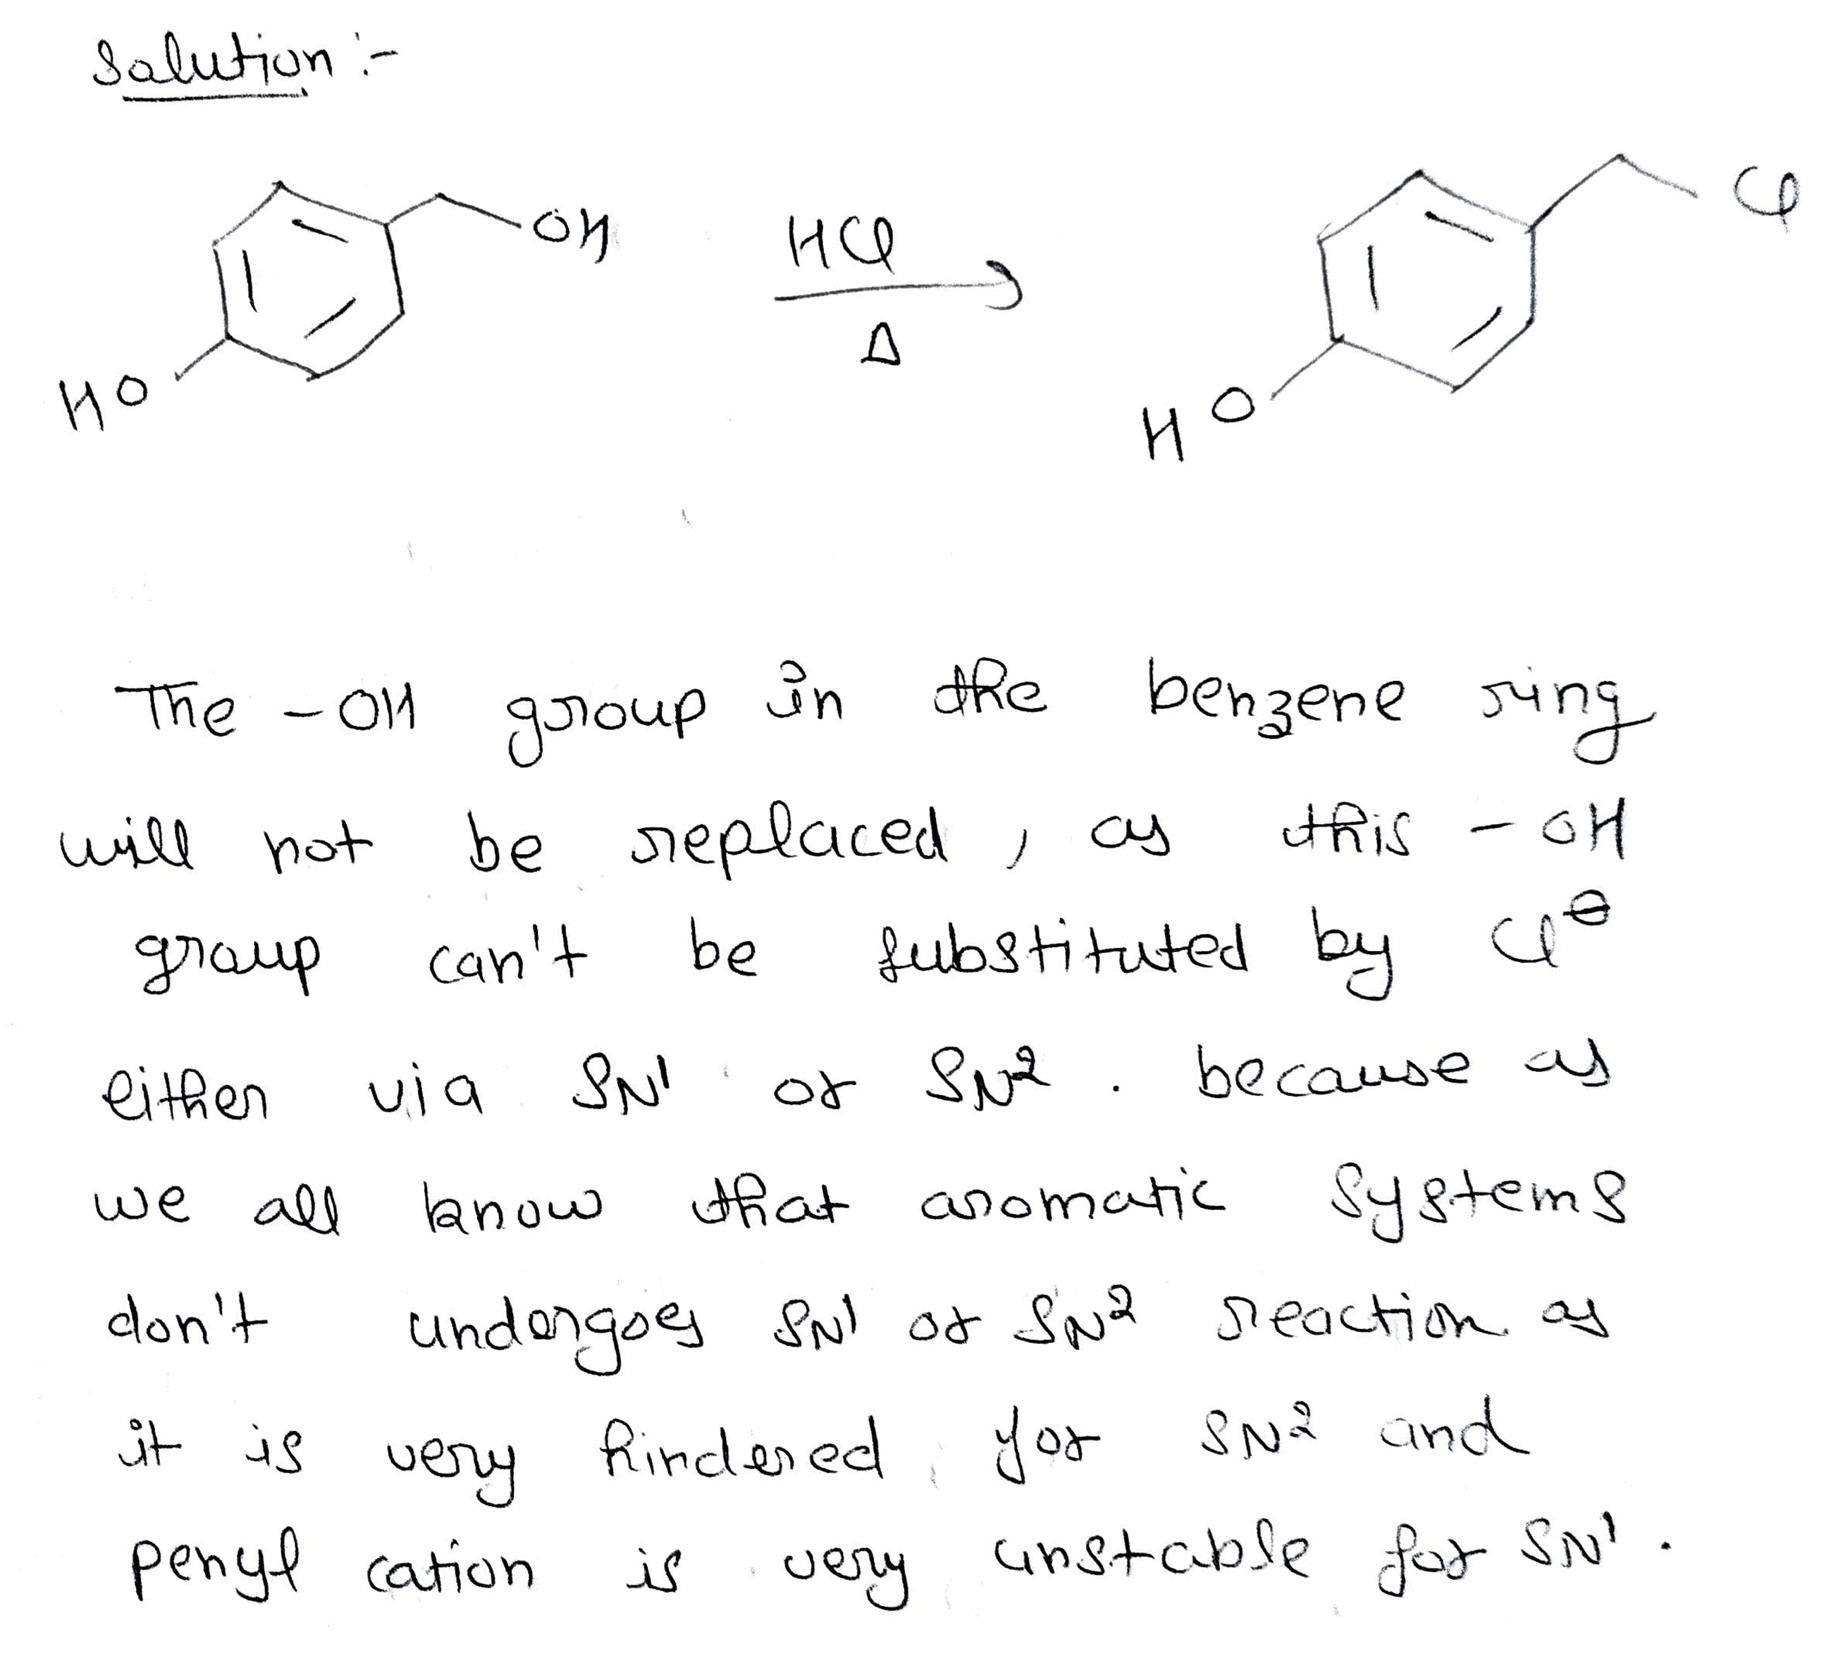 Solution :-
OH
HO
HCl
Δ
Cl
HO
The -OH group in the benzene ring
will not be replaced, as this -OH
group can't be substituted by Cl⊖
either via SN1 or SN2. because as
we all know that aromatic systems
don't undergoes SN1 or SN2 reaction as
it is very hindered for SN2 and
penyl cation is very unstable for SN1.